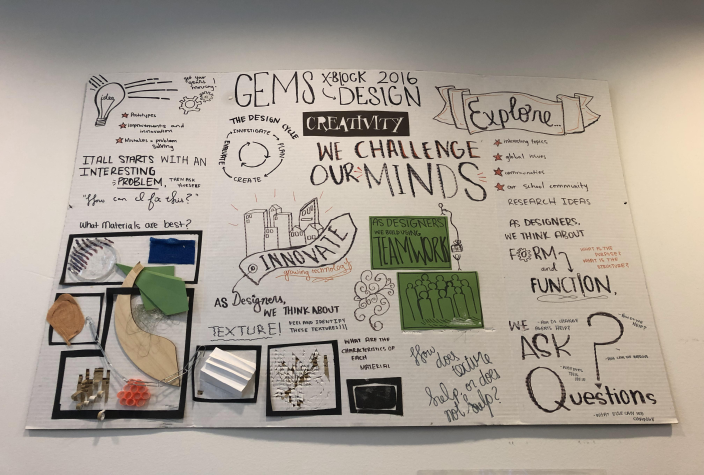 GEMS X-BLOCK 2016
DESIGN
CREATIVITY
WE CHALLENGE
OUR MINDS
idea
get your
gears
turning
Prototypes
improvements and
innovation
mistakes = problem
solving
IT ALL STARTS WITH AN
INTERESTING
PROBLEM, THEN ASK
YOURSELF
"How can I fix this?"
What Materials are best?
THE DESIGN CYCLE
INVESTIGATE
PLAN
CREATE
EVALUATE
INNOVATE
growing technology
AS Designers,
WE THINK ABOUT
TEXTURE!
FEEL AND IDENTIFY
THESE TEXTURES!!!
WHAT ARE THE
CHARACTERISTICS OF
EACH
MATERIAL
AS DESIGNERS
WE BUILD USING
TEAMWORK
How does texture
help or does
not help?
Explore...
interesting topics
global issues
communities
our school community
RESEARCH IDEAS
AS DESIGNERS,
WE THINK ABOUT
FORM
and
FUNCTION.
WHAT IS THE
PURPOSE?
WHAT IS THE
STRUCTURE?
WE
ASK
Questions
?